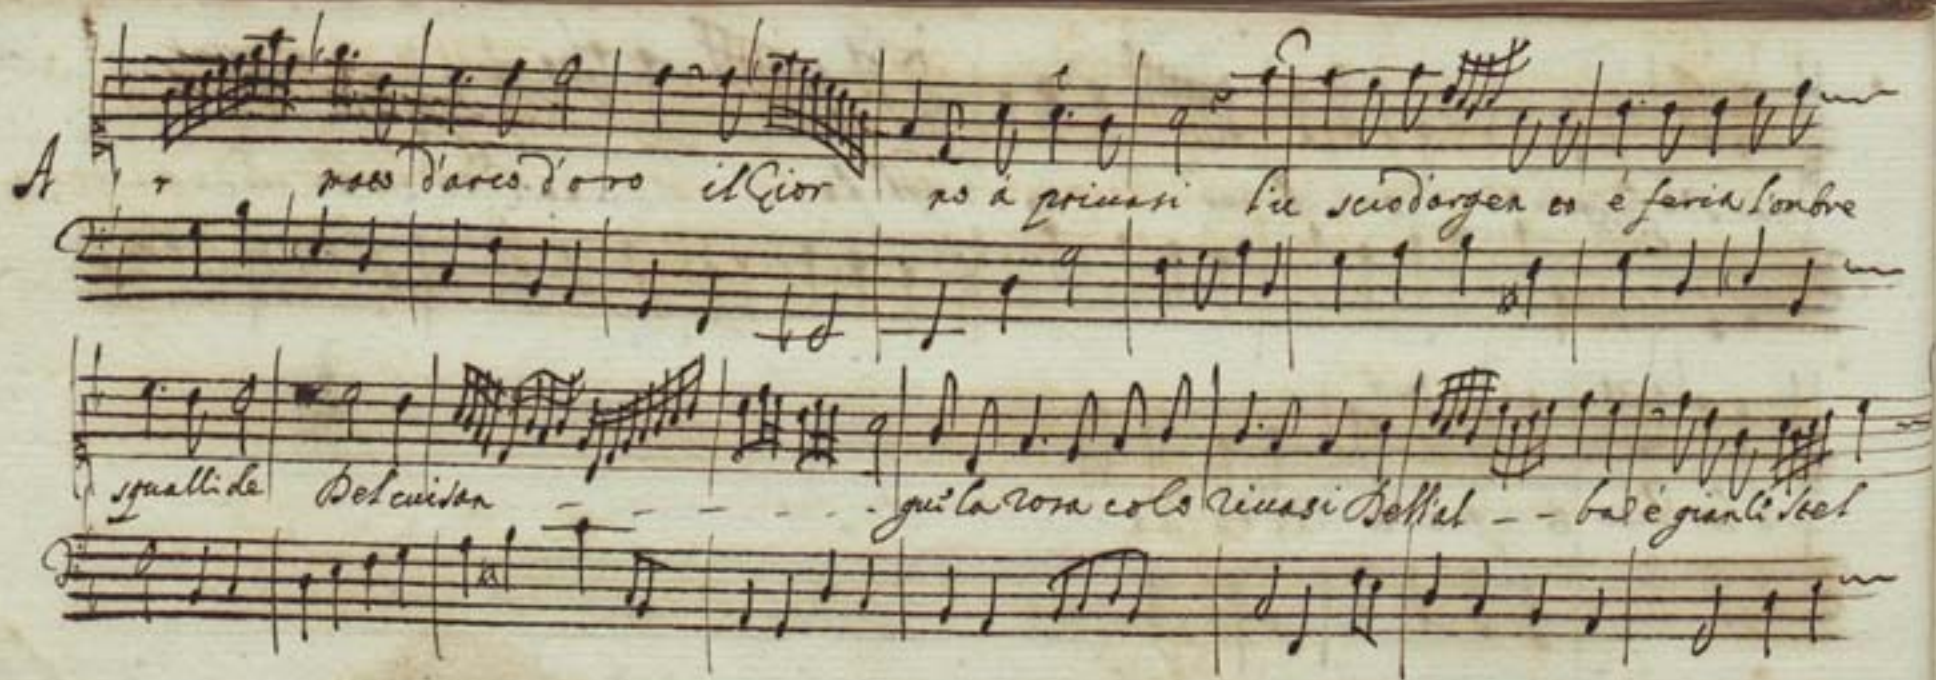 A r mato d'arco d'oro il Gior no à priuasi l'u scio d'argen to e feria l'ombre
squallide Del cui san - - - - - - gui la rosa colo riuasi Dell'al - - ba e gia nli stel